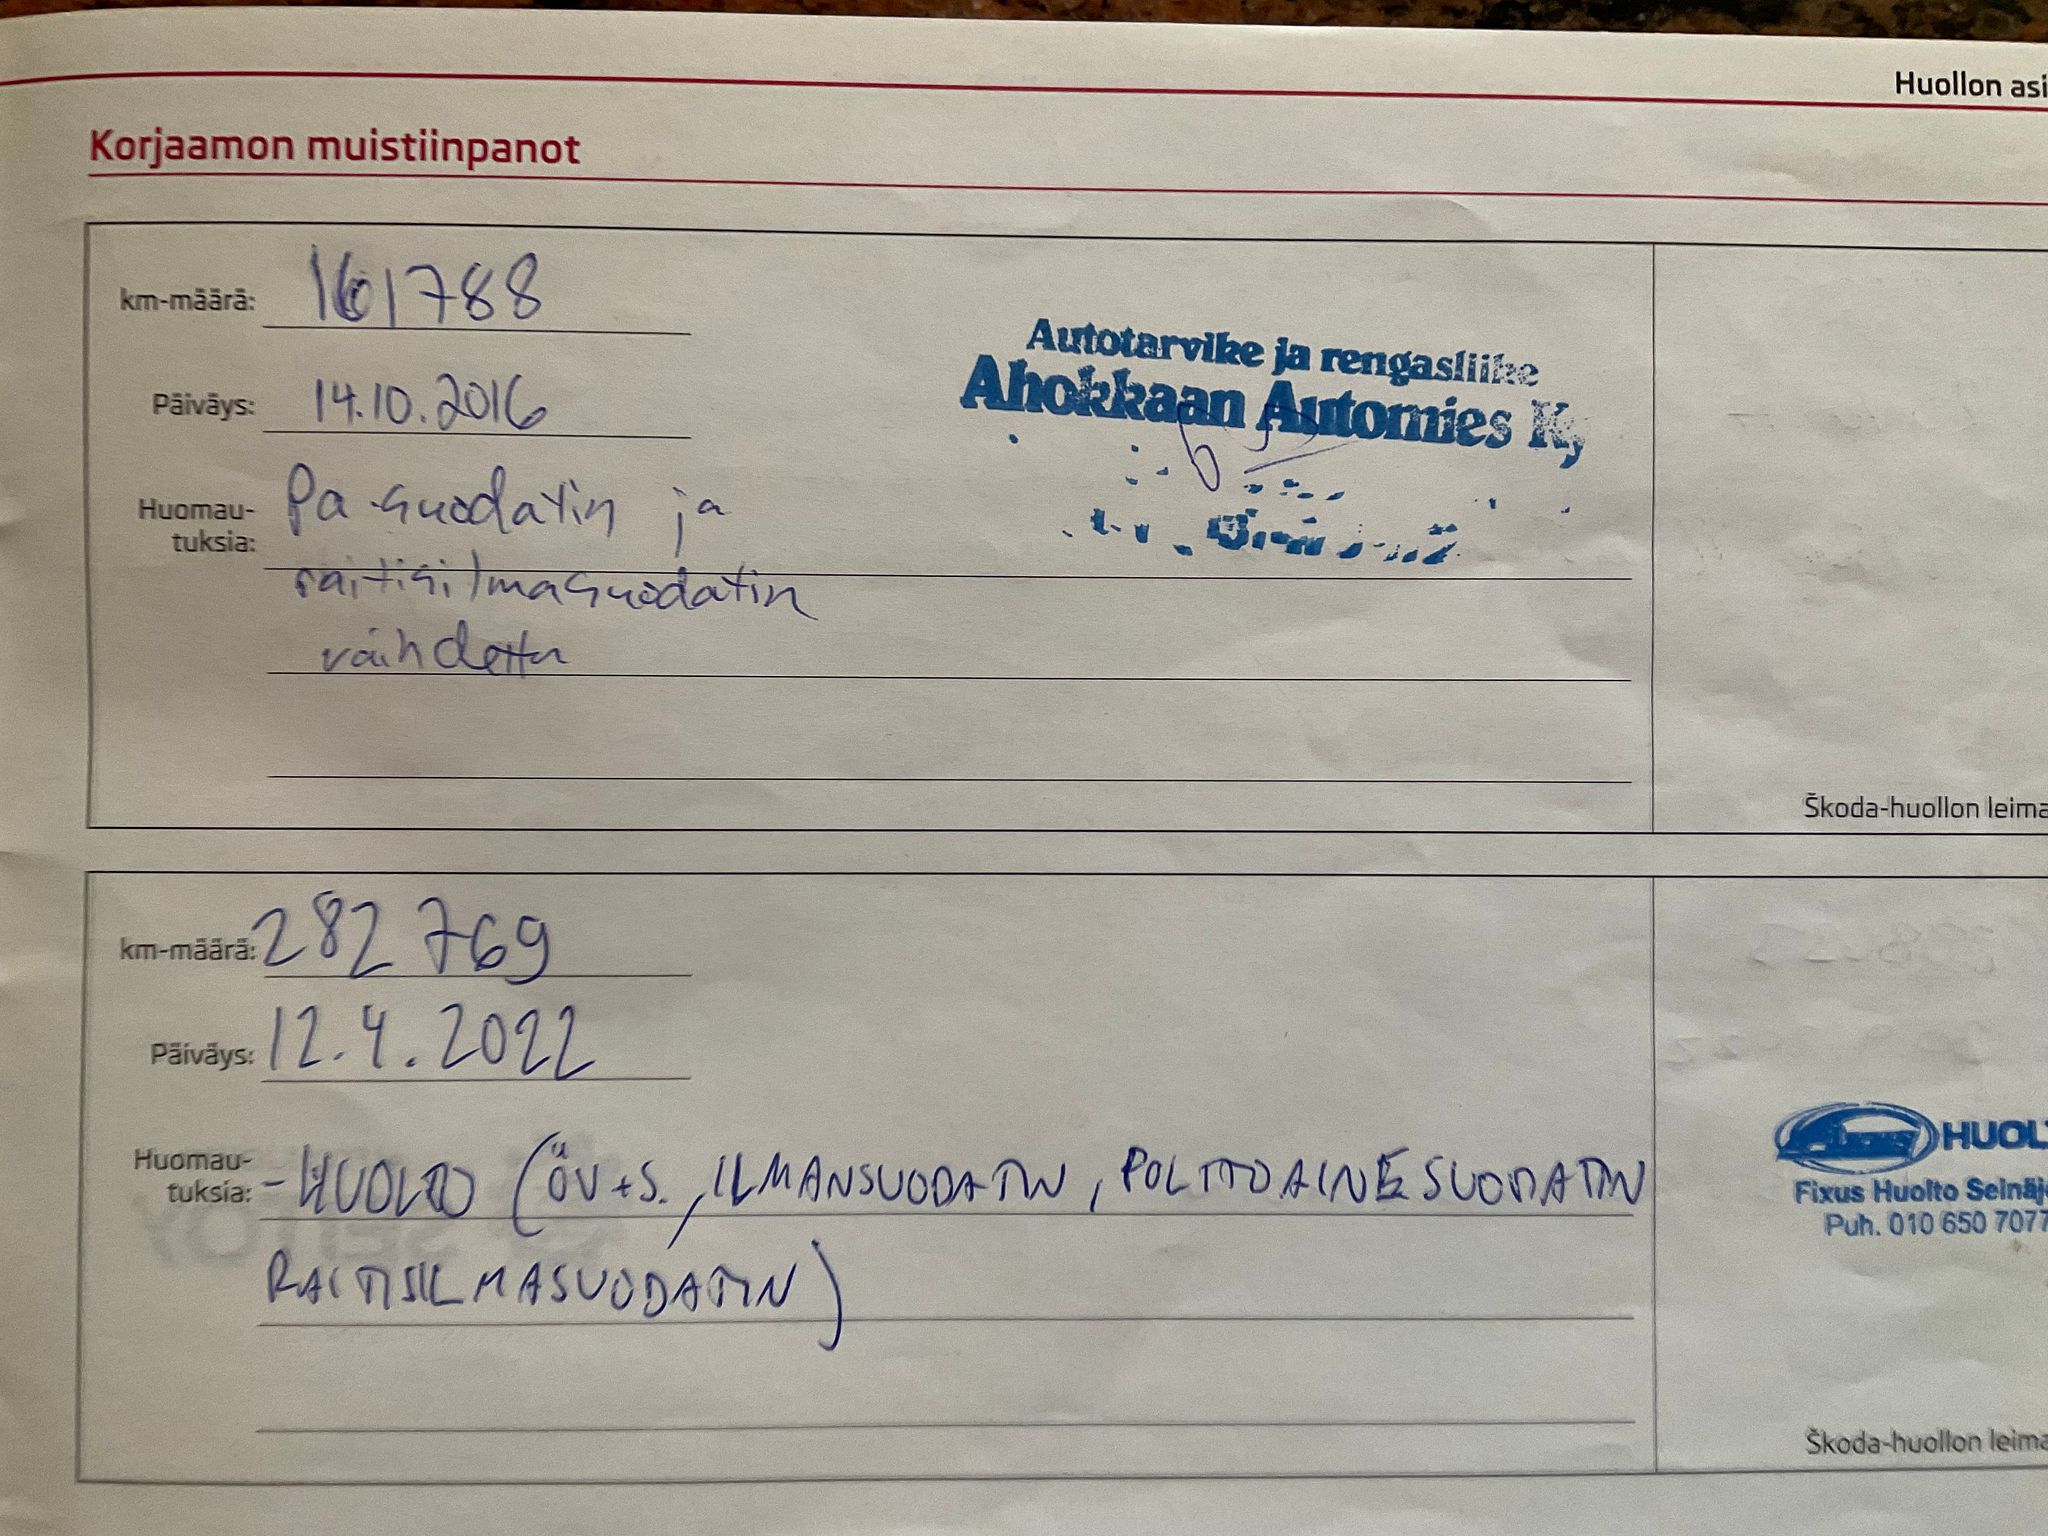 Huollon asi
Korjaamon muistiinpanot
km-määrä: 161788
Autotarvike ja rengasliike
Ahokkaan Automies Ky
Päiväys: 14.10.2016
Huomau-
tuksia:
Pa-suodatin ja
raitisilmasuodatin
vaihdettu
Škoda-huollon leima
km-määrä: 282 769
Päiväys: 12.4.2022
Huomau-
tuksia:
- HUOLTO (ÖV+S., ILMANSUODATIN, POLTTOAINESUODATIN
RAITISILMASUODATIN)
HUOLT
Fixus Huolto Seinäjo
Puh. 010 650 7077
Škoda-huollon leima